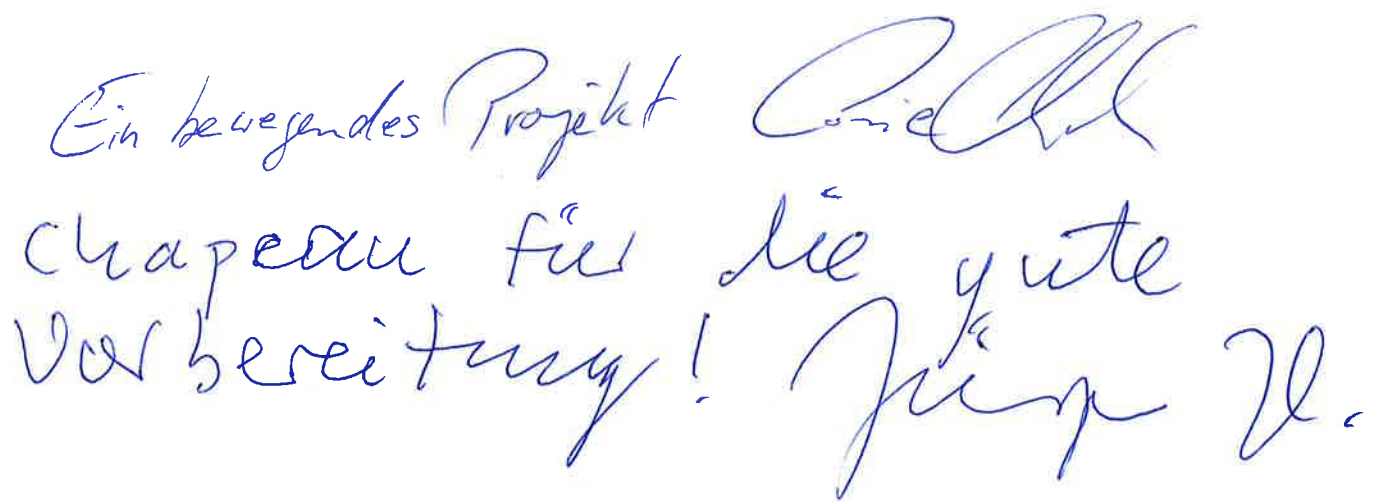 Ein bewegendes Projekt
Chapeau für die gute
Vorbereitung! Jürgen H.